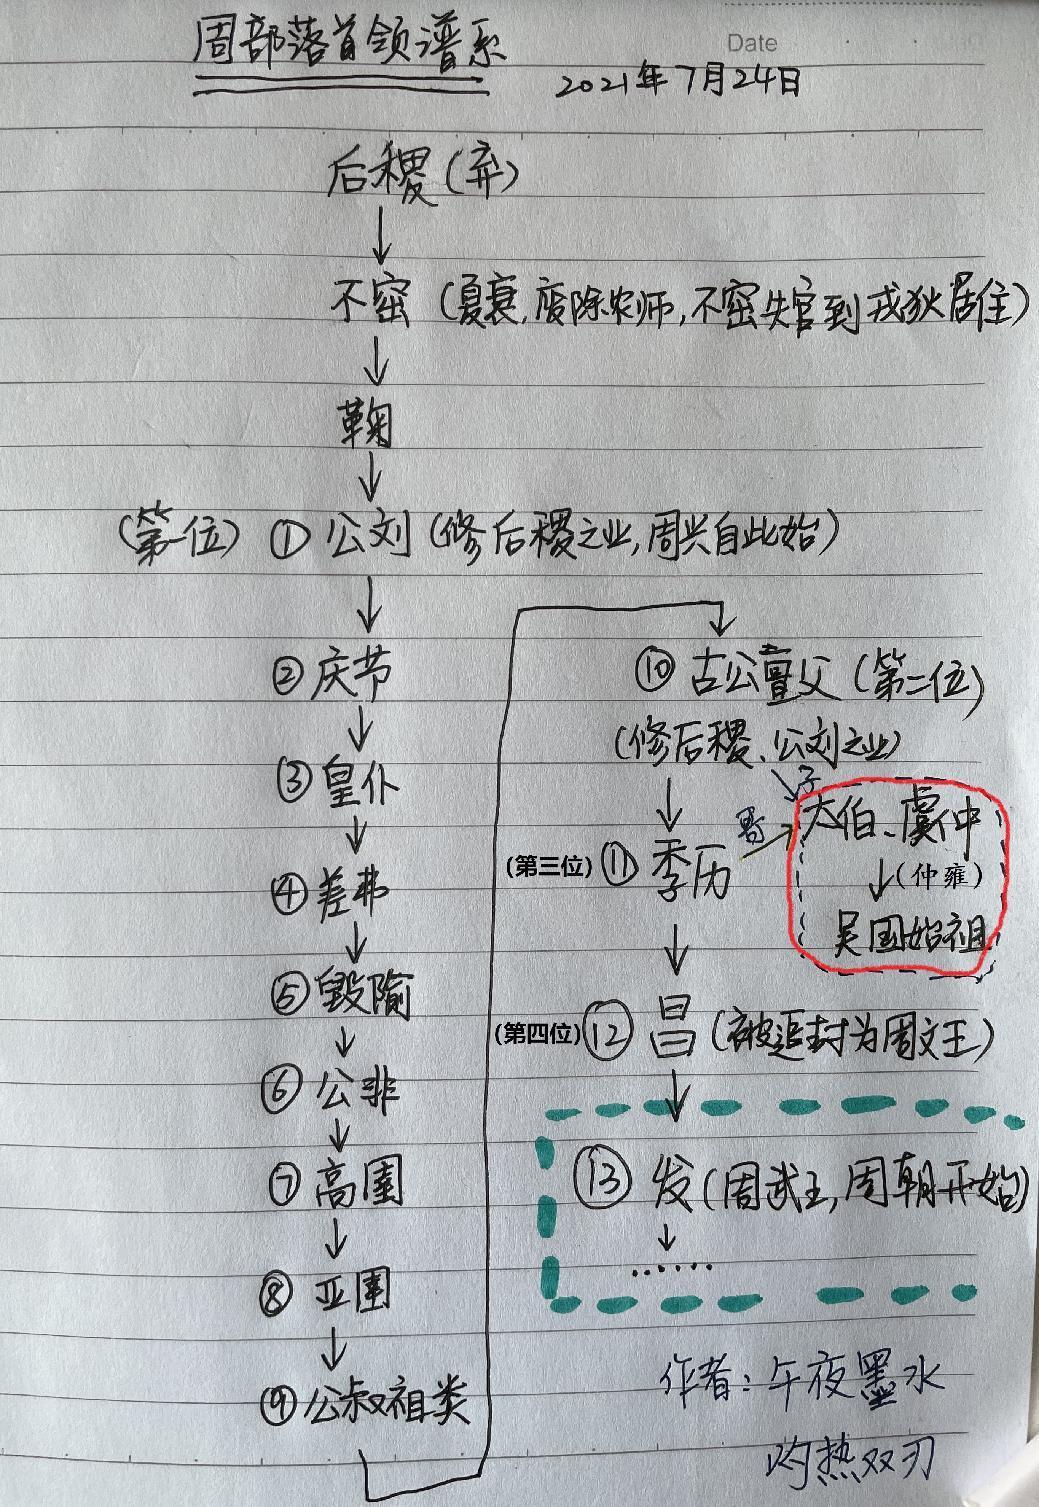 周部落首领谱系
Date
2021年7月24日
后稷(弃)
不窋(夏衰,废除农师,不窋失官到戎狄居住)
鞠
(第一位)①公刘(修后稷之业,周兴自此始)
②庆节
③皇仆
④差弗
⑤毁隃
⑥公非
⑦高圉
⑧亚圉
⑨公叔祖类
⑩古公亶父(第二位)
(修后稷、公刘之业)
子
哥
太伯、虞仲
(仲雍)
吴国始祖
(第三位)⑪季历
(第四位)⑫昌(被追封为周文王)
⑬发(周武王,周朝开始)
......
作者:午夜墨水
灼热双刃